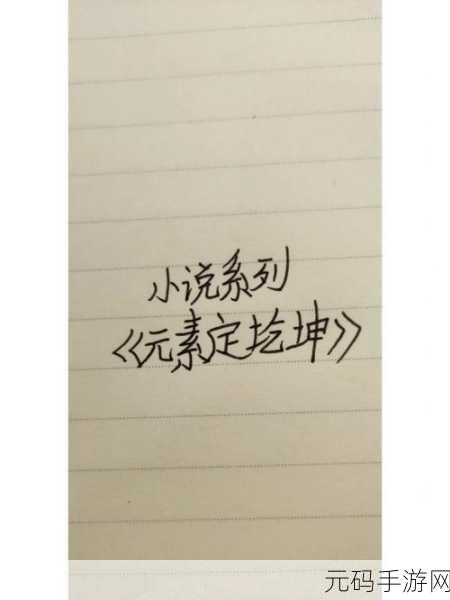 小说系列
《元素定乾坤》
元码手游网